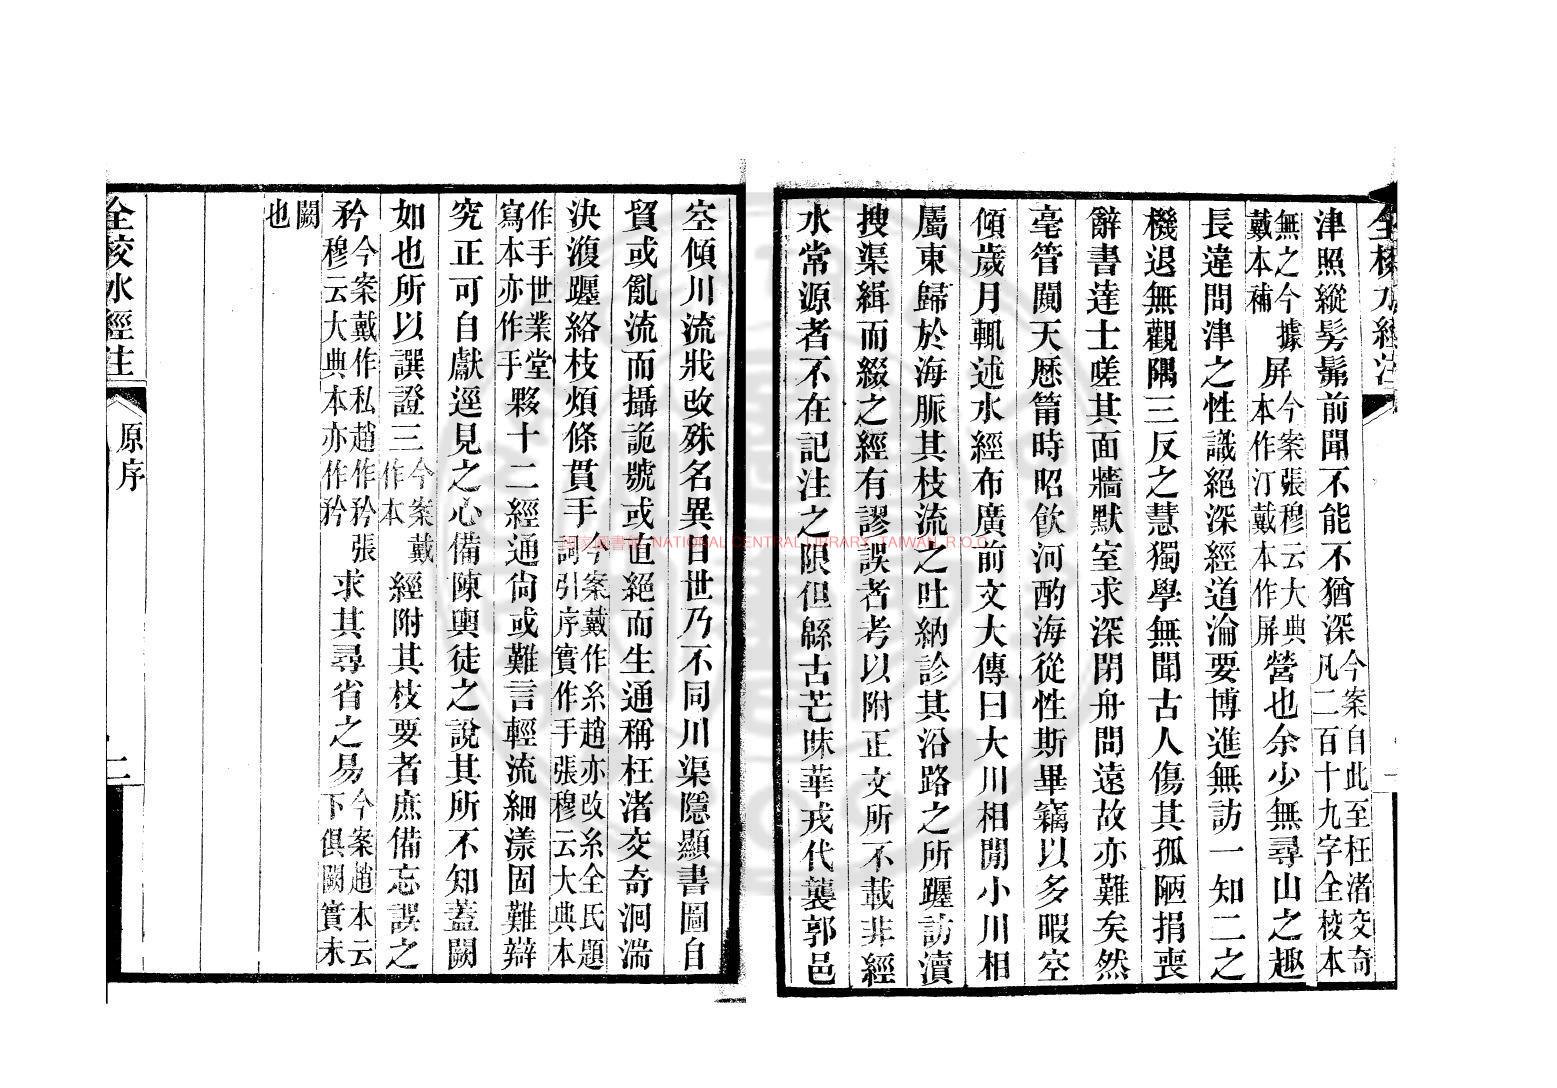 全校水經注
津照縱髣髴前聞不能不猶深今案自此至枉渚交奇凡二百十九字全校本
無之今據戴本補屏今案張穆云大典本作汀戴本作屏營也余少無尋山之趣
長違問津之性識絕深經道淪要博進無訪一知二之
機退無觀隅三反之慧獨學無聞古人傷其孤陋捐喪
辭書達士嗟其面牆默室求深閉舟問遠故亦難矣然
毫管闚天歷筩時昭飲河酌海從性斯畢竊以多暇空
傾歲月輒述水經布廣前文大傳曰大川相閒小川相
屬東歸於海脈其枝流之吐納診其沿路之所躔訪瀆
搜渠緝而綴之經有謬誤者考以附正文所不載非經
水常源者不在記注之限但緜古芒昧華戎代襲郭邑
空傾川流戕改殊名異目世乃不同川渠隱顯書圖自
貿或亂流而攝詭號或直絕而生通稱枉渚交奇洄湍
決澓躔絡枝煩條貫手今案戴作系趙亦改系全氏題詞引序實作手張穆云大典本
作手世業堂寫本亦作手夥十二經通尙或難言輕流細漾固難辯
究正可自獻逕見之心備陳輿徒之說其所不知蓋闕
如也所以譔證三今案戴作本經附其枝要者庶備忘誤之
矜今案戴作私趙作矜張穆云大典本亦作矜求其尋省之易今案趙本云下俱闕實未
闕也
全校水經注
原序
二
國家圖書館 NATIONAL CENTRAL LIBRARY, TAIWAN, R.O.C